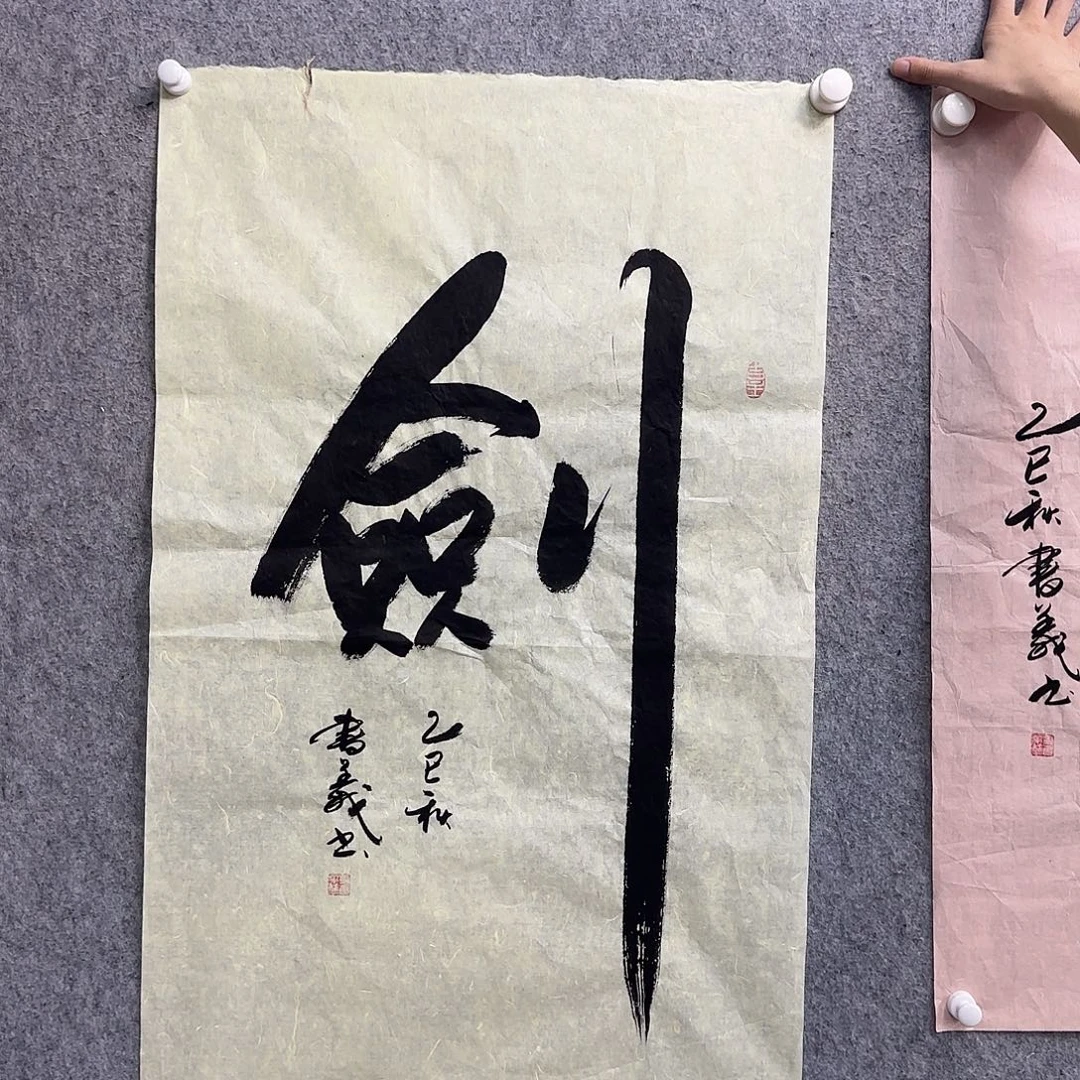 劍
乙巳秋
書義书
乙巳秋書義书